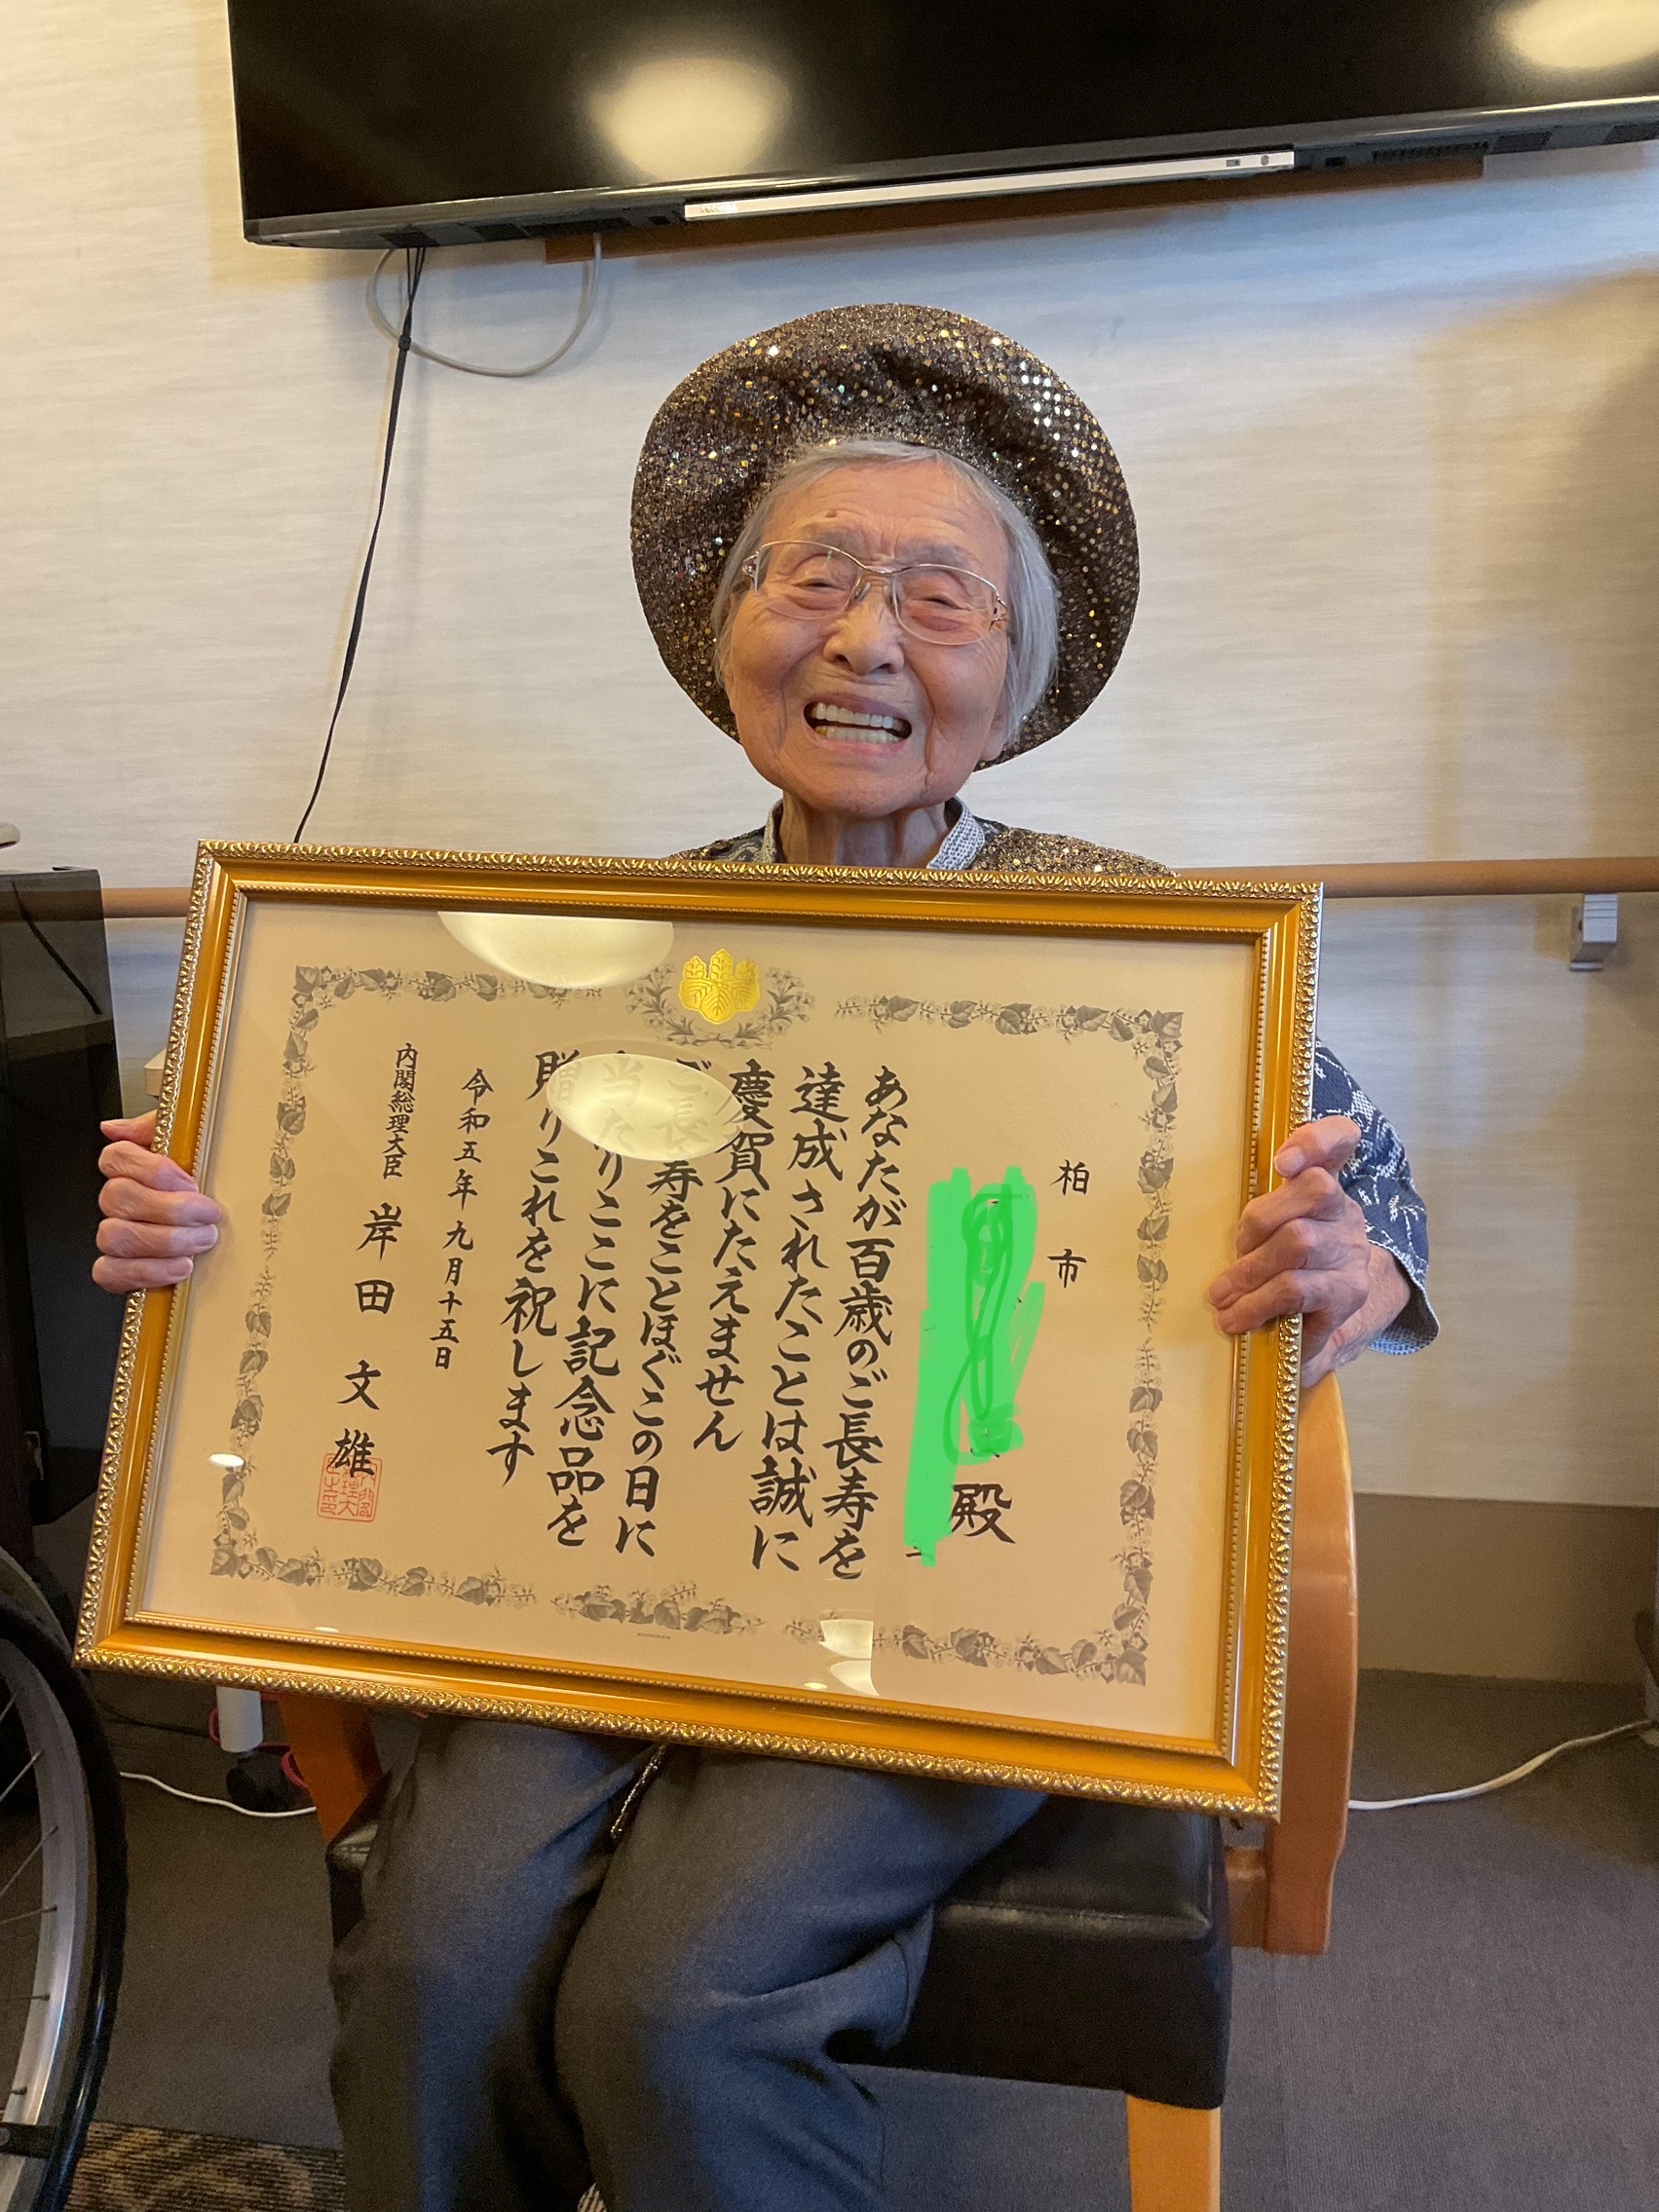 柏市
殿
あなたが百歳のご長寿を
達成されたことは誠に
慶賀にたえません
ご長寿をことほぐこの日に
当たりここに記念品を
贈りこれを祝します
令和五年九月十五日
内閣総理大臣 岸田文雄